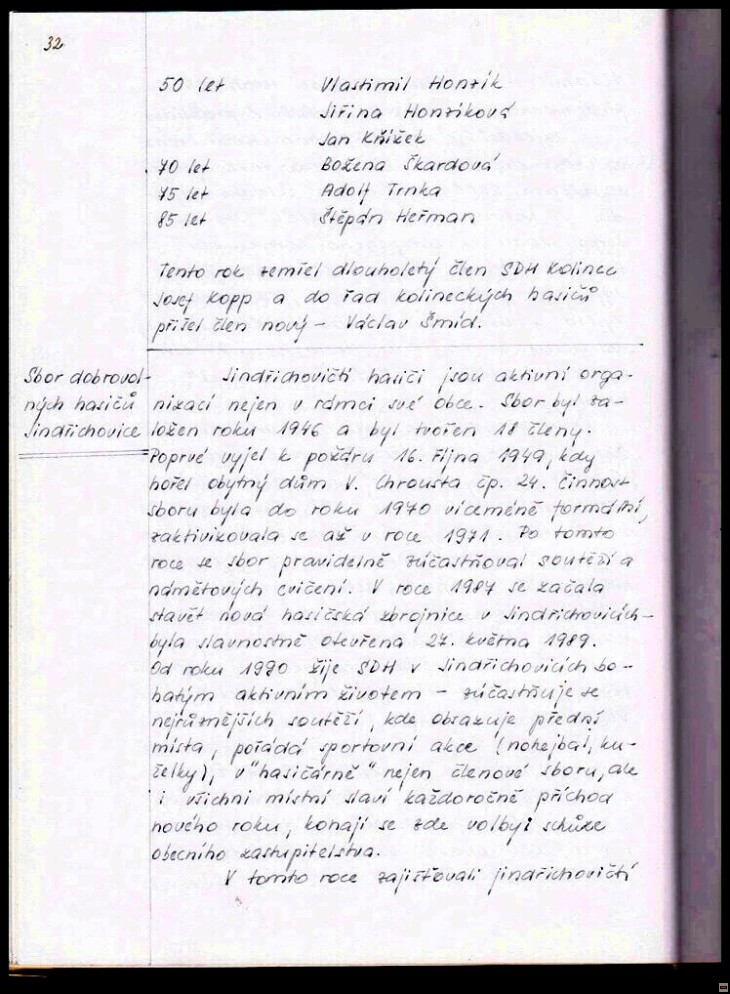 32
50 let Vlastimil Honzík
Jiřina Honzíková
Jan Křížek
70 let Božena Škardová
75 let Adolf Trnka
85 let Štěpán Heřman
Tento rok zemřel dlouholetý člen SDH Kolinec
Josef Kopp a do řad kolineckých hasičů
přišel člen nový - Václav Šmíd.
Sbor dobrovol-
ných hasičů
Jindřichovice
Jindřichovičtí hasiči jsou aktivní orga-
nizací nejen v rámci své obce. Sbor byl za-
ložen roku 1946 a byl tvořen 18 členy.
Poprvé vyjel k požáru 16. října 1949, kdy
hořel obytný dům V. Chrousta čp. 24. Činnost
sboru byla do roku 1970 víceméně formální,
zaktivikovala se až v roce 1971. Po tomto
roce se sbor pravidelně zúčastňoval soutěží a
námětových cvičení. V roce 1987 se začala
stavět nová hasičská zbrojnice v Jindřichovicích -
byla slavnostně otevřena 27. května 1989.
Od roku 1990 žije SDH v Jindřichovicích bo-
hatým aktivním životem - zúčastňuje se
nejrůznějších soutěží, kde obsazuje přední
místa, pořádá sportovní akce (nohejbal, ku-
želky), v "hasičárně" nejen členové sboru, ale
i všichni místní slaví každoročně příchod
nového roku, konají se zde volby i schůze
obecního zastupitelstva.
V tomto roce zajišťovali jindřichovičtí